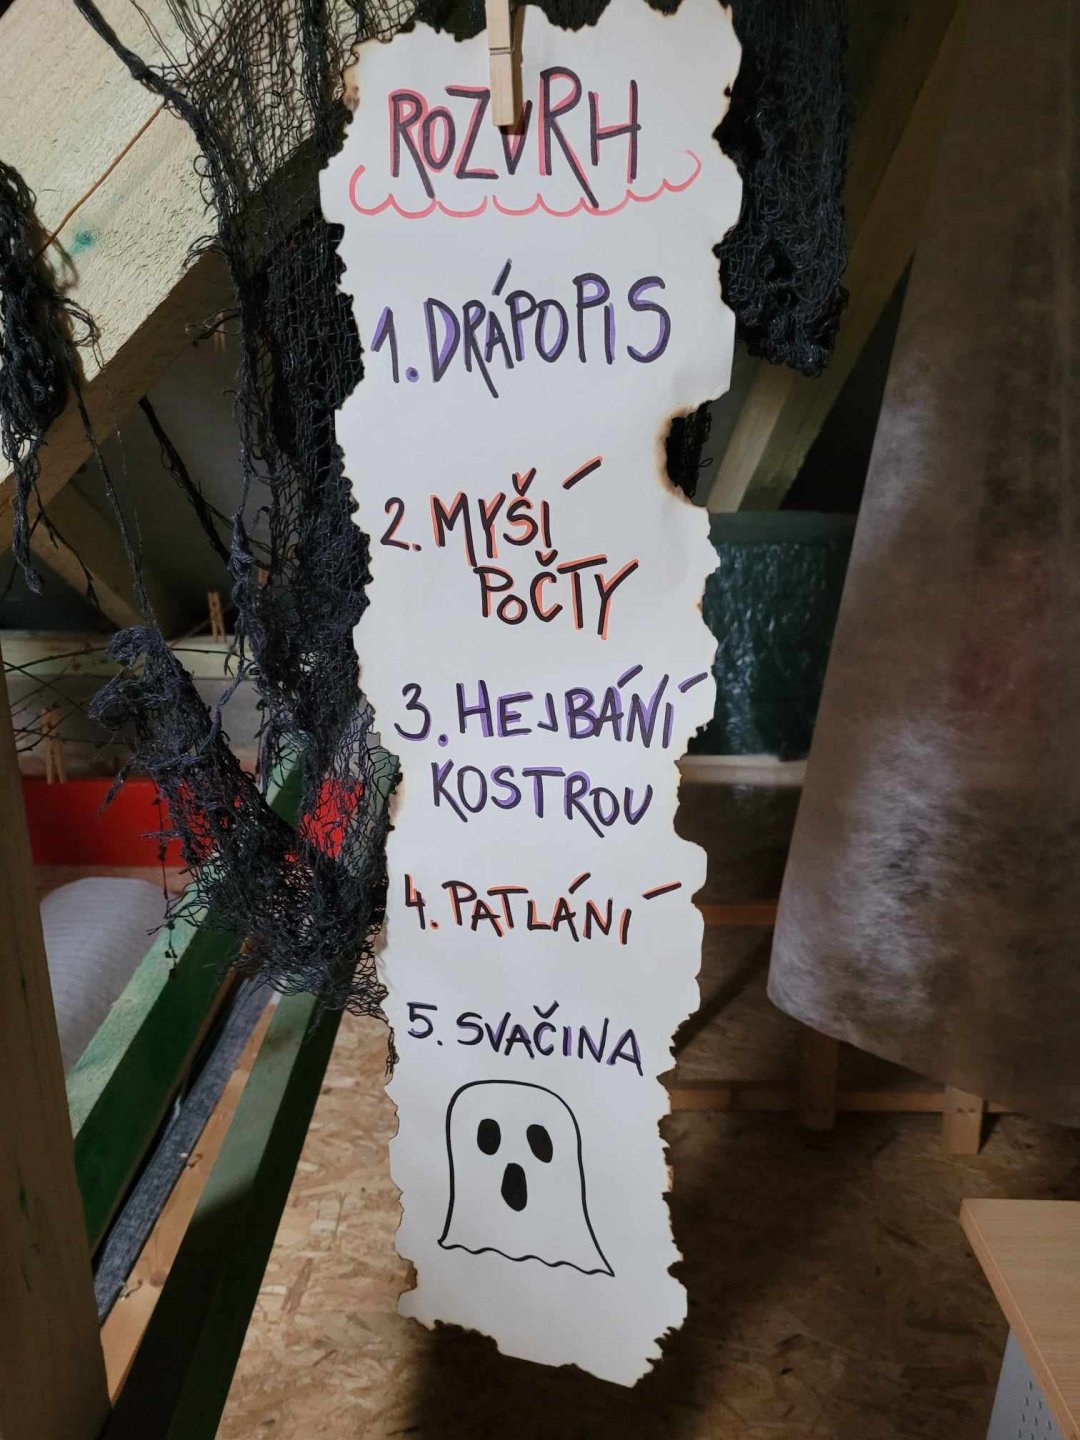 ROZVRH
1. DRÁPOPIS
2. MYŠÍ
POČTY
3. HEJBÁNÍ
KOSTROU
4. PATLÁNÍ
5. SVAČINA